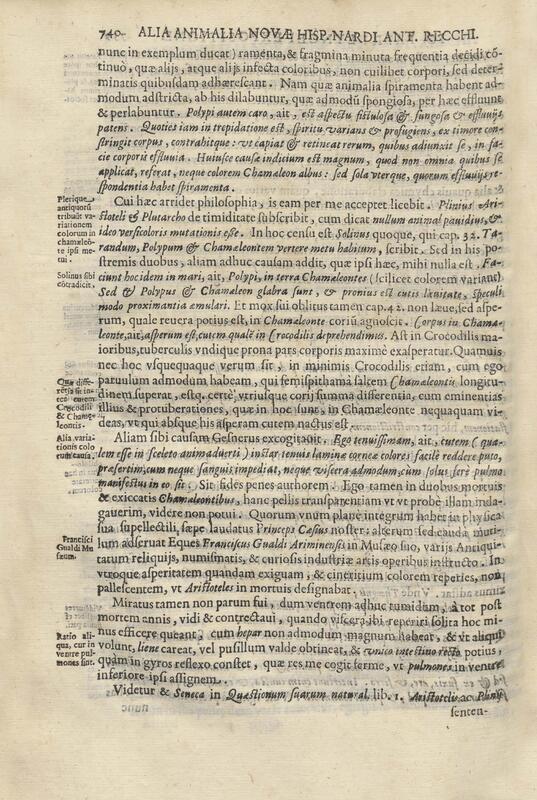 740 ALIA ANIMALIA NOVÆ HISP. NARDI ANT. RECCHI.
nunc in exemplum ducat) ramenta, & fragmina minuta frequentia decidi cō-
tinuò, quæ alijs, atque alijs infecta coloribus, non cuilibet corpori, sed deter-
minatis quibusdam adhærescant. Nam quæ animalia spiramenta habent ad-
modum adstricta, ab his dilabuntur, quæ admodū spongiosa, per hæc effluunt
& perlabuntur. Polypi autem caro, ait, est aspectu fistulosa & fungosa & effluvijs
patens. Quoties iam in trepidatione est, spiritu varians & profugiens, ex timore con-
stringit corpus, contrahitque: vt capiat & retineat rerum, quibus adiunxit se, in fa-
cie corporis effluvia. Huiusce causæ indicium est magnum, quod non omnia quibus se
applicat, referat, neque colorem Chamæleon albus: sed sola vterque, quorum effluvijs re-
spondentia habet spiramenta.
Plerique
antiquorū
tribuūt va-
riationem
colorum in
chamæleō-
te ipsi me-
tui.
Cui hæc arridet philosophia, is eam per me accepset licebit. Plinius Ari-
stoteli & Plutarcho de timiditate subscribit, cum dicat nullum animal pavidius, &
ideo versicoloris mutationis esse. In hoc censu est Solinus quoque, qui cap. 32. Ta-
randum, Polypum & Chamæleontem vertere metu habitum, scribit. Sed in his po-
stremis duobus, aliam adhuc causam addit, quæ ipsi hæc, mihi nulla est. Fa-
Solinus sibi
cōtradicit.
ciunt hoc idem in mari, ait, Polypi, in terra Chamæleontes (scilicet colorem variant)
Sed & Polypus & Chamæleon glabra sunt, & pronius est cutis læuitate, speculi
modo proximantia æmulari. Et mox sui oblitus tamen cap. 42. non læue, sed aspe-
rum, quale revera potius est, in Chamæleonte coriū agnoscit. Corpus in Chamæ-
leonte, ait, asperum est, cutem qualē in Crocodilis deprehendimus. Ast in Crocodilis ma-
ioribus, tuberculis vndique prona pars corporis maximè exasperatur. Quamuis
nec hoc vsquequaque verum sit, in minimis Crocodilis etiam, cum ego
Quæ diffe-
rētia sit in-
ter cutem
Crocodili
& Chamæ-
leontis.
paruulum admodum habeam, qui semispithamā saltem Chamæleontis longitu-
dinem superat, estq. certè, vtriusque corij summa differentia, cum eminentias
illius & protuberationes, quæ in hoc sunt, in Chamæleonte nequaquam vi-
deas, vt qui absque his asperam cutem nactus est.
Alia varia-
tionis colo
rum causa.
Aliam sibi causam Gesnerus excogitauit. Ego tenuissimam, ait, cutem (qua-
lem esse in sceleto animaduerti) instar tenuis laminæ corneæ colores facilè reddere puto,
præsertim, cum neque sanguis impediat, neque viscera admodum, cum solus ferè pulmo
manifestus in eo sit. Sit fides penes authorem. Ego tamen in duobus mortuis
& exiccatis Chamæleontibus, hanc pellis transparentiam vt vt probè illam inda-
gauerim, videre non potui. Quorum vnum planè integrum habet in physica
sua supellectili, sæpe laudatus Princeps Cæsius noster: alterum sed cauda muti-
Francisci
Gualdi Mu
sæum.
lum adseruat Eques Franciscus Gualdi Ariminensis in Musæo suo, varijs Antiqui-
tatum reliquijs, numismatis, & curiosis industriæ artis operibus instructo. In
vtroque asperitatem quandam exiguam, & cineritium colorem reperies, non
pallescentem, vt Aristoteles in mortuis designabat.
Miratus tamen non parum fui, dum ventrem adhuc tumidum, à tot post
mortem annis, vidi & contrectaui, quando viscera ibi reperiri solita hoc mi-
Ratio ali-
qua, cur in
ventre pul-
mones sint.
nus efficere queant, cum hepar non admodum magnum habeat, & vt aliqui
volunt, liene careat, vel pusillum valde obtineat, & vnico intestino recto potius,
quàm in gyros reflexo constet, quæ res me cogit ferme, vt pulmones in ventre
inferiore ipsi assignem.
Videtur & Seneca in Quæstionum suarum natural. lib. 1. Aristotelis ac Plinij
senten-